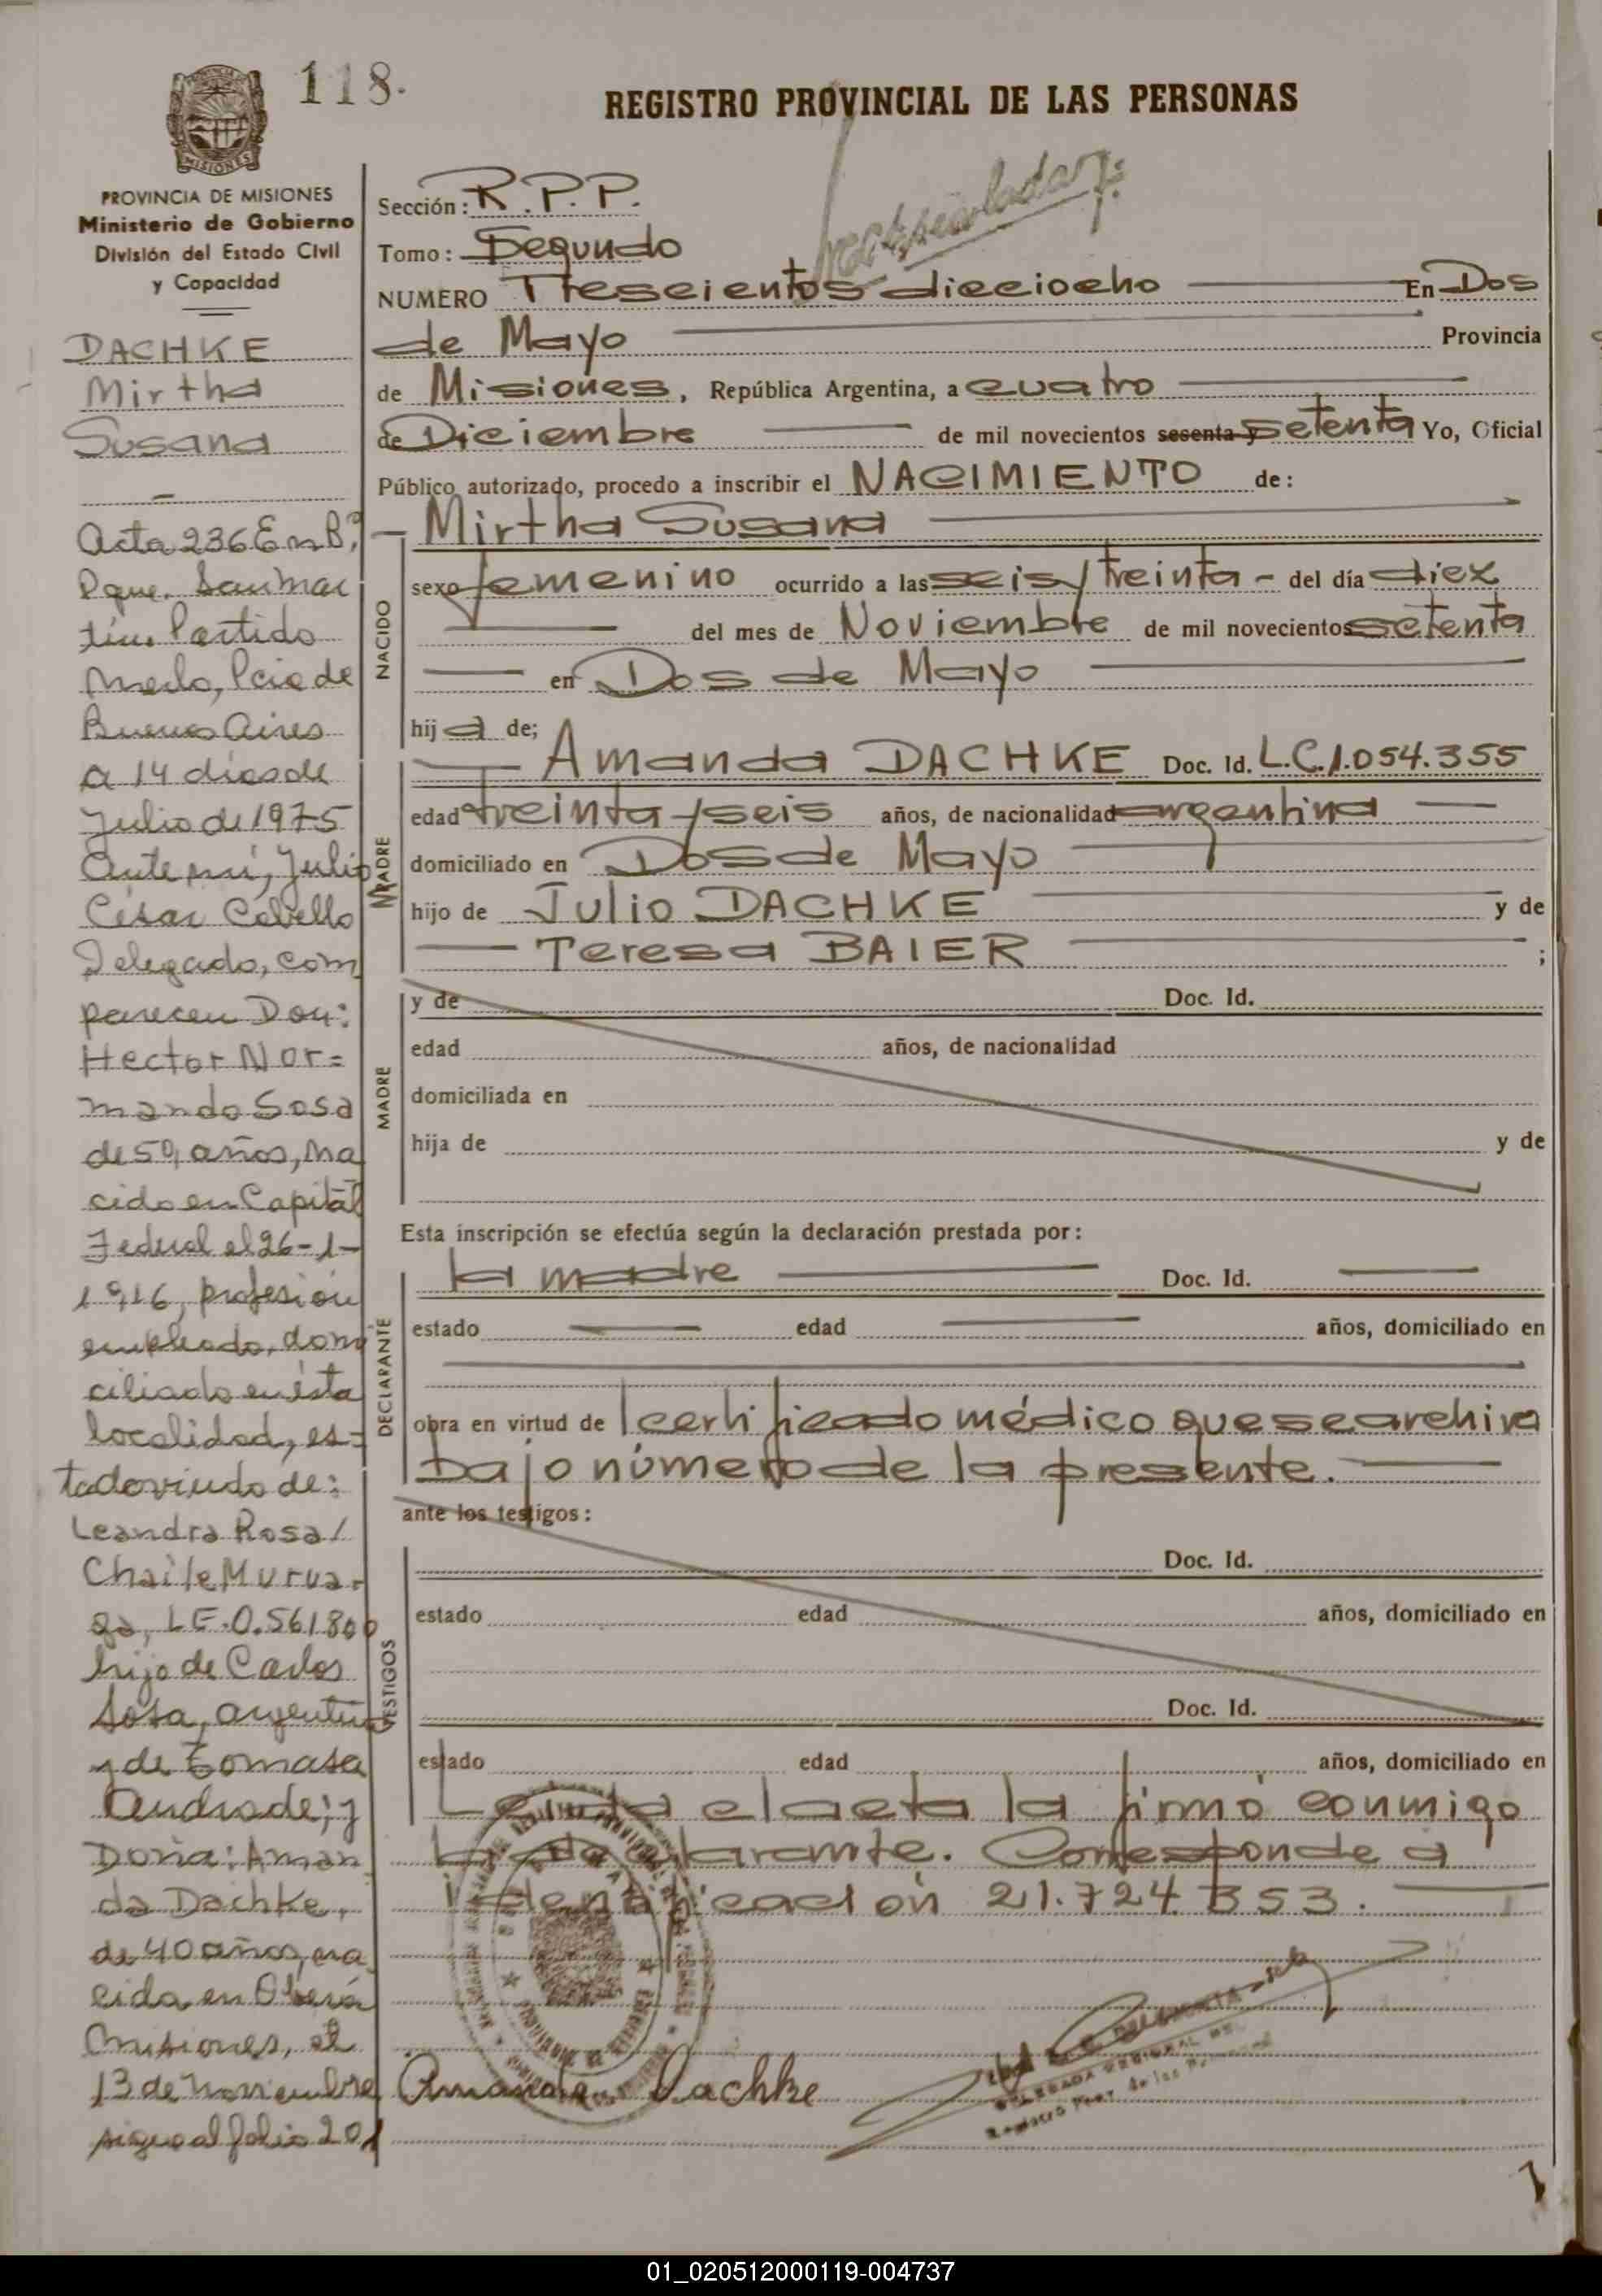 118.
REGISTRO PROVINCIAL DE LAS PERSONAS
MISIONES
PROVINCIA DE MISIONES
Ministerio de Gobierno
División del Estado Civil
y Capacidad
DACHKE
Mirtha
Susana
Acta 236 E en Bº
Pque. San Mar
tín. Partido
Merlo, Pcia de
Buenos Aires
a 14 días de
Julio de 1975
Ante mí, Julio
César Cabello
Delegado, com
parecen Don:
Hector Nor=
mando Sosa
de 59, años, na
cido en Capital
Federal el 26-1-
1916, profesión
empleado, domi
ciliado en ésta
localidad, es=
tado viudo de:
Leandra Rosa/
Chaile Murua-
ga, LE. 0.561800
hijo de Carlos
Sosa, argentino
y de Tomasa
Andrade; y
Doña: Aman
da Dachke,
de 40 años, na
cida en Oberá
Misiones, el
13 de noviembre
sigue al folio 201
Sección: R.P.P.
Tomo: Segundo
NUMERO Trescientos dieciocho En Dos
de Mayo Provincia
de Misiones, República Argentina, a cuatro
de Diciembre de mil novecientos sesenta y setenta Yo, Oficial
Público autorizado, procedo a inscribir el NACIMIENTO de:
Mirtha Susana
NACIDO
sexo femenino ocurrido a las seis y treinta - del día diez
del mes de Noviembre de mil novecientos setenta
en Dos de Mayo
hij a de;
MADRE
Amanda DACHKE Doc. Id. L.C.1.054.355
edad treinta y seis años, de nacionalidad argentina
domiciliado en Dos de Mayo
hijo de Julio DACHKE y de
Teresa BAIER ;
MADRE
y de Doc. Id.
edad años, de nacionalidad
domiciliada en
hija de y de
Esta inscripción se efectúa según la declaración prestada por:
DECLARANTE
la madre Doc. Id.
estado edad años, domiciliado en
obra en virtud de certificado médico que se archiva
bajo número de la presente.
ante los testigos:
TESTIGOS
Doc. Id.
estado edad años, domiciliado en
Doc. Id.
estado edad años, domiciliado en
Leida el acta la firmó conmigo
la declarante. Corresponde a
identificación 21.724.353.
Amanda Dachke
DELEGADA REGIONAL
01_020512000119-004737